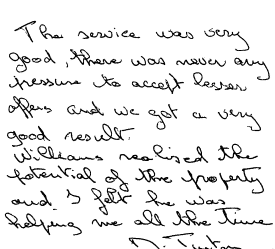 The service was very
good, there was never any
pressure to accept lesser
offers and we got a very
good result.
Williams realised the
potential of the property
and I felt he was
helping me all the time